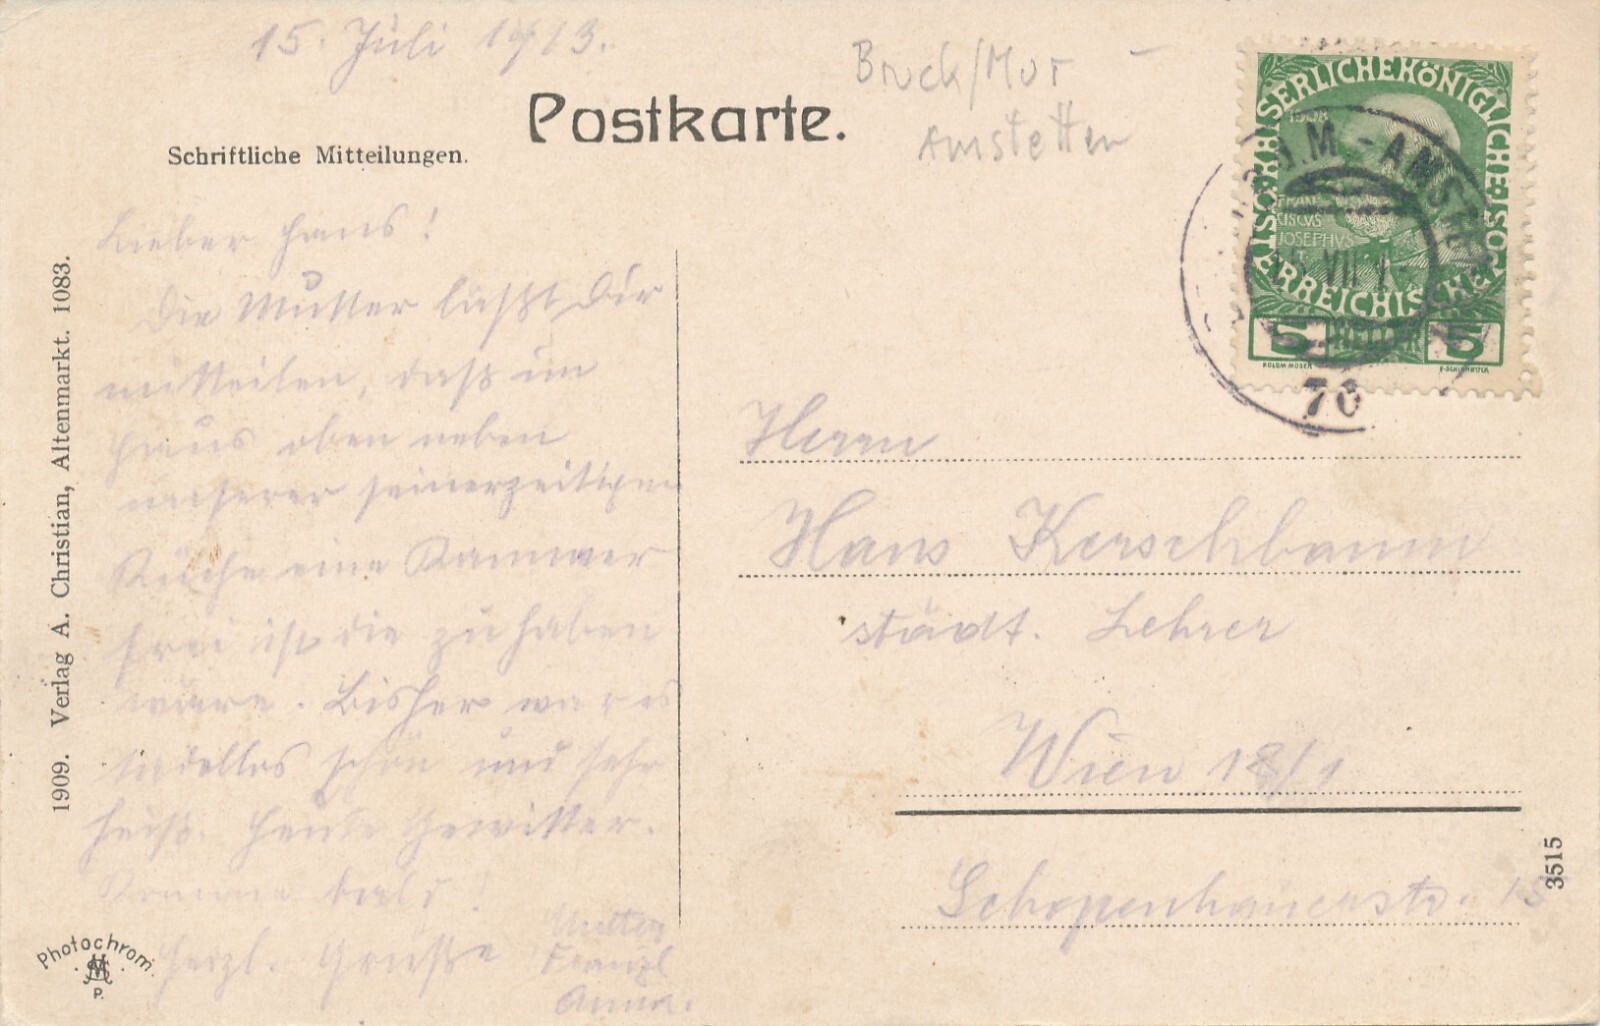 15. Juli 1913.
Bruck/Mur
Amstetten
Postkarte.
Schriftliche Mitteilungen.
Lieber Hans!
Die Mutter läßt Dir
mitteilen, daß im
Haus oben neben
unserer seinerzeitigen
Küche eine Kammer
frei ist die zu haben
wäre. Bisher war es
tadellos schön und sehr
heiß. Heute Gewitter.
Komme bald!
Herzl. Grüße
Mutter
Franzl
Anna.
1909. Verlag A. Christian, Altenmarkt. 1083.
Photochrom.
P.
KAISERLICHE KÖNIGLICHE
ÖSTERREICHISCHE
1908
FRAN
CISCVS
JOSEPHVS
5 HELLER 5
KOLOM MOSER
F·SCHIRNBÖCK
M.-AMST
VII
70
Herrn
Hans Kerschbaum
städt. Lehrer
Wien 18/1
Schopenhauerstr. 15
3515